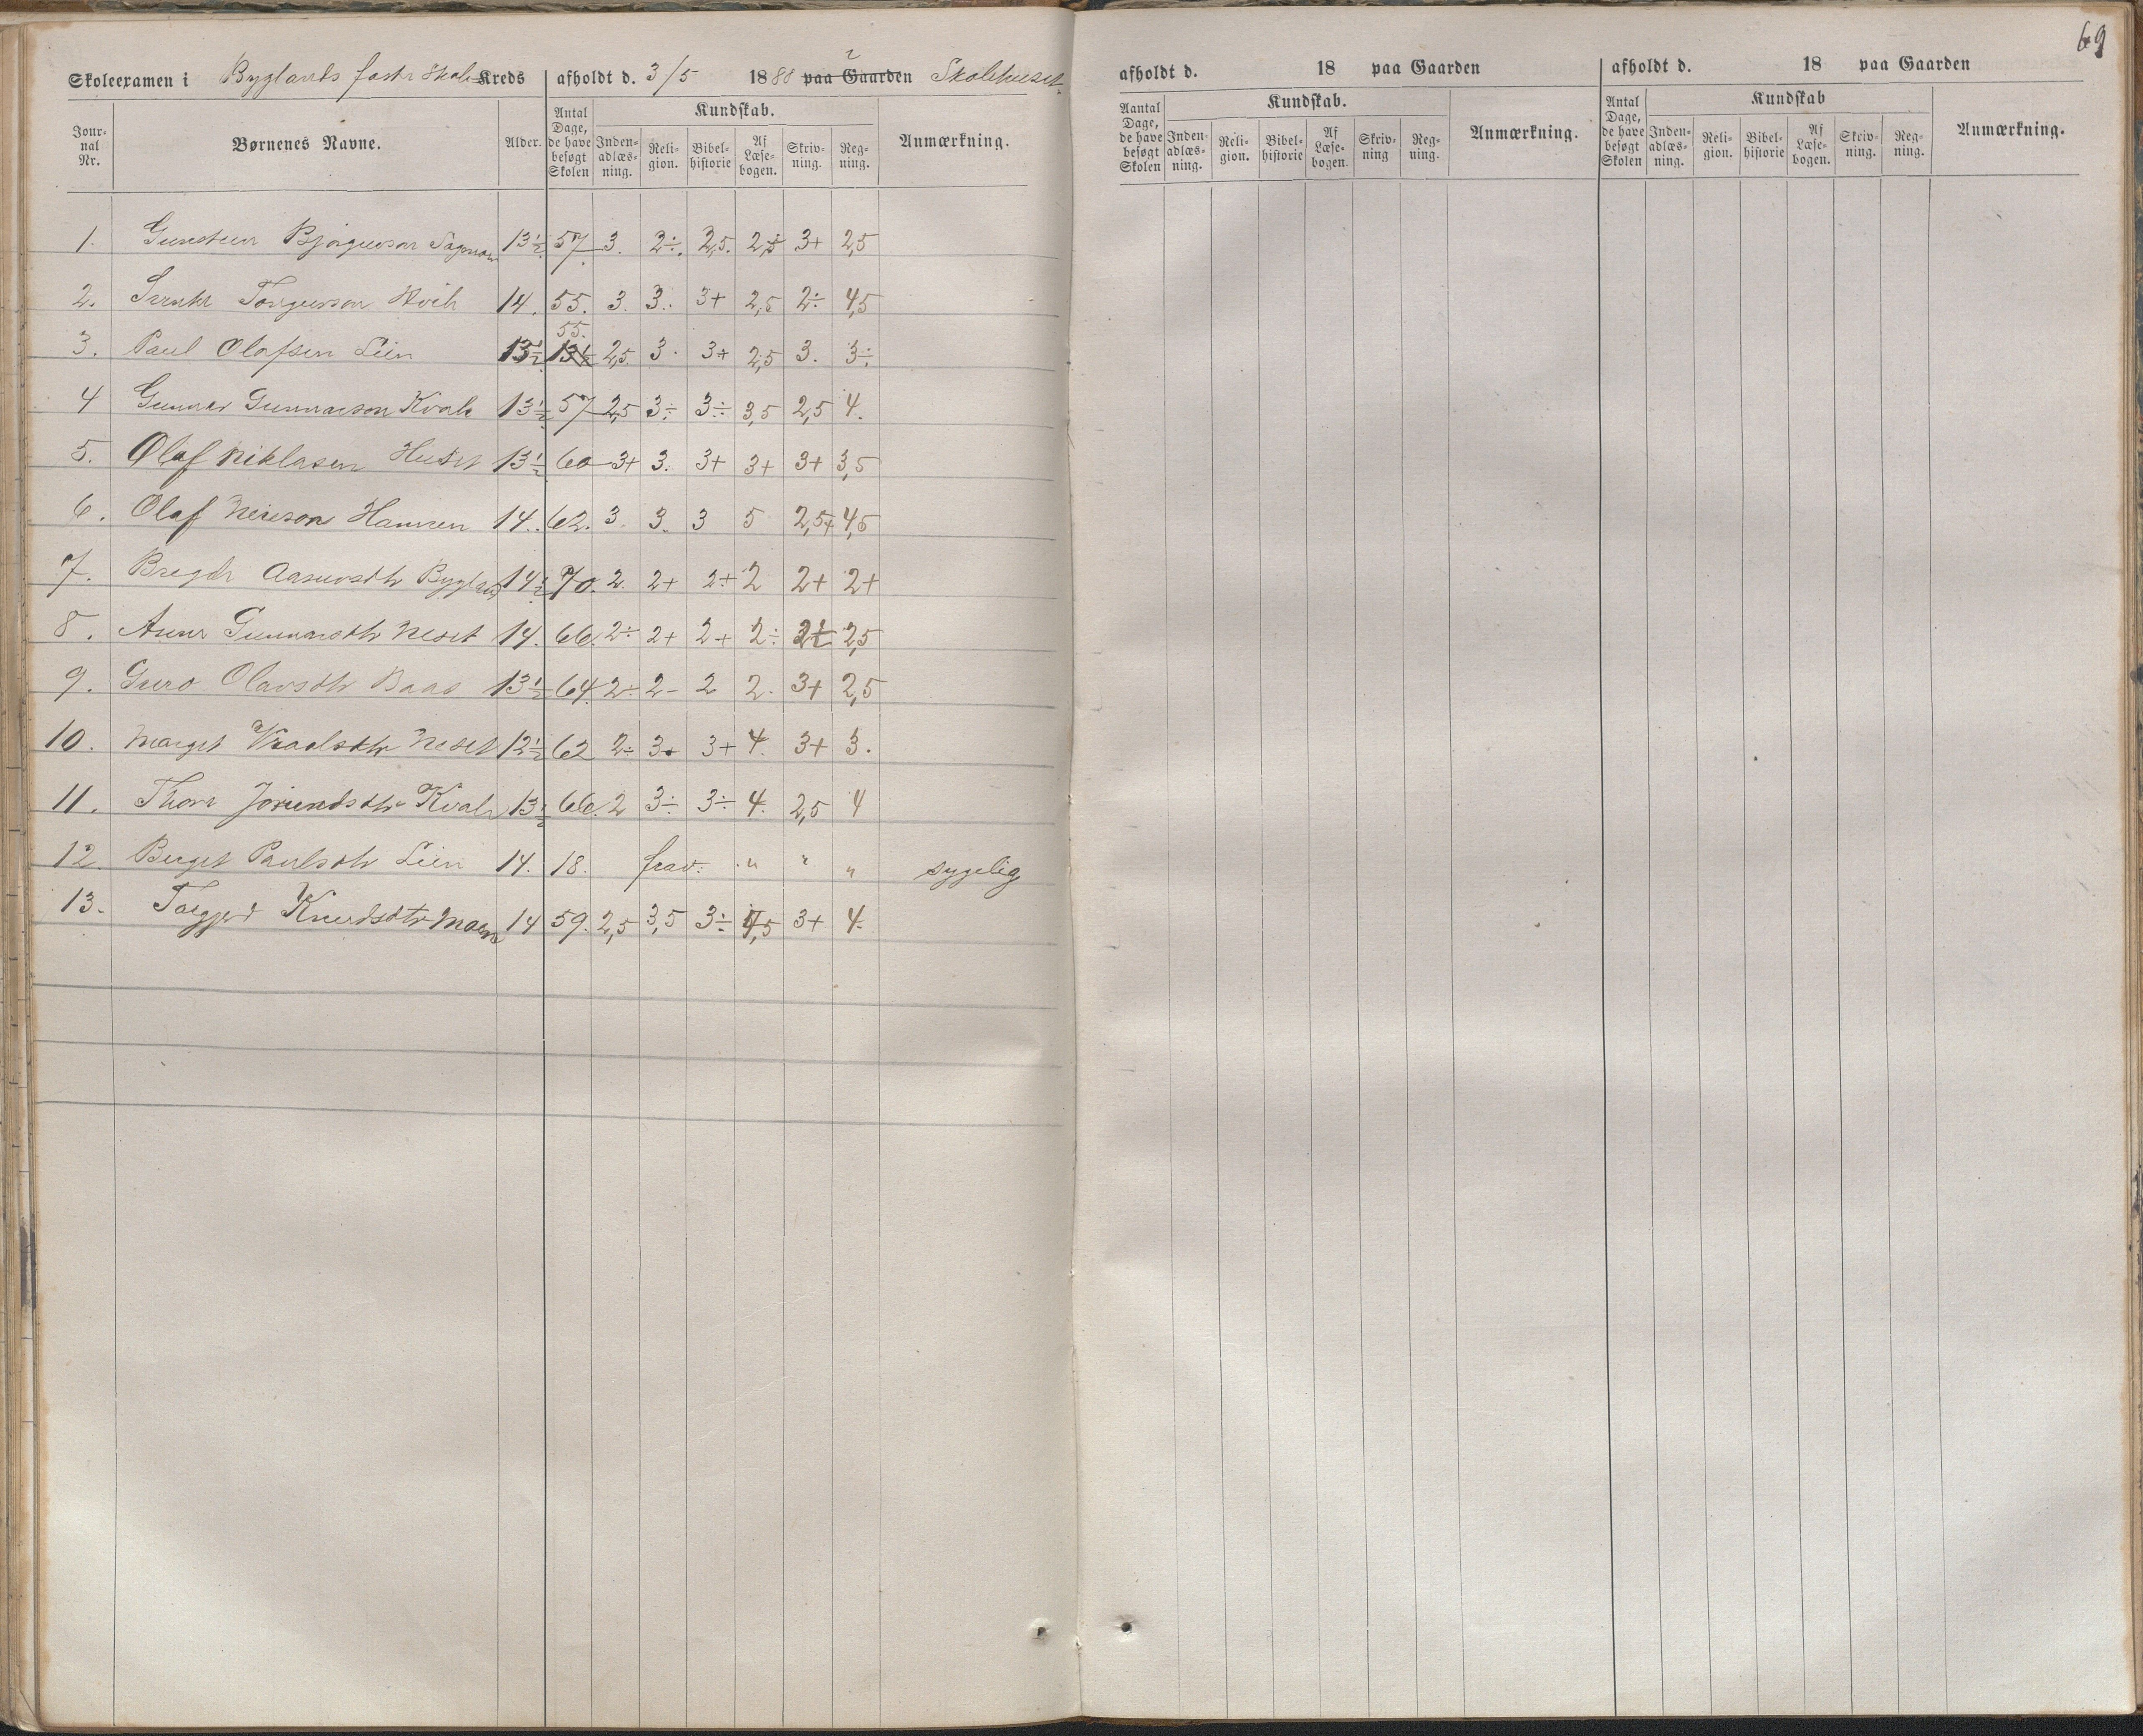 69
Skoleexamen i Byglands faste Skole Kreds afholdt d. 3/5 1888 paa Gaarden i Skolehuset.
Jour-nal Nr. Børnenes Navne. Alder. Antal Dage, de have besøgt Skolen Kundskab. Inden-adlæs-ning. Reli-gion. Bibel-historie Af Læse-bogen. Skriv-ning. Reg-ning. Anmærkning.
1. Bjørguvson 13½ 57 3. 2÷. 2,5. 2,5 3+ 2,5
2. Torguvson 14. 55. 3. 3. 3+ 2,5 2÷ 4,5
3. Paul Olafsen Lien 13½ 55. 13½ 2,5. 3. 3+ 2,5 3. 3÷
4 Gunnar Gunnarson Kvale 13½ 57 2,5 3÷ 3÷ 3,5 2,5 4.
5. Olaf Niklasen Huset 13½ 60 3+ 3. 3+ 3+ 3+ 3,5
6. Olaf Neirson Hamren 14. 62. 3. 3. 3 5 2,5+ 4,5
7. Bregde Aasuvsdtr Bygland 14½ 70. 2. 2+ 2+ 2 2+ 2+
8. Anne Gunnarsdtr Neset 14. 66. 2÷ 2+ 2+ 2÷ 2,5
9. Guro Olavsdtr Baas 13½ 64. 2÷ 2- 2 2. 3+ 2,5
10. Marget Neset 12½ 62 2÷ 3+ 3+ 4. 3+ 3.
11. Thore Jørundsdtr Kvale 13½ 66. 2 3÷ 3÷ 4. 2,5 4
12. Berget Paulsdtr Lien 14. 18. frav. " " " sygelig
13. Torgjerd Knudsdtr Moen 14 59. 2,5 3,5 3÷ 4,5 3+ 4.
afholdt d. 18 paa Gaarden
Aantal Dage, de have besøgt Skolen Kundskab. Inden-adlæs-ning. Reli-gion. Bibel-historie Af Læse-bogen. Skriv-ning Reg-ning. Anmærkning.
afholdt d. 18 paa Gaarden
Antal Dage, de have besøgt Skolen Kundskab Inden-adlæs-ning. Reli-gion. Bibel-historie Af Læse-bogen. Skriv-ning. Reg-ning. Anmærkning.